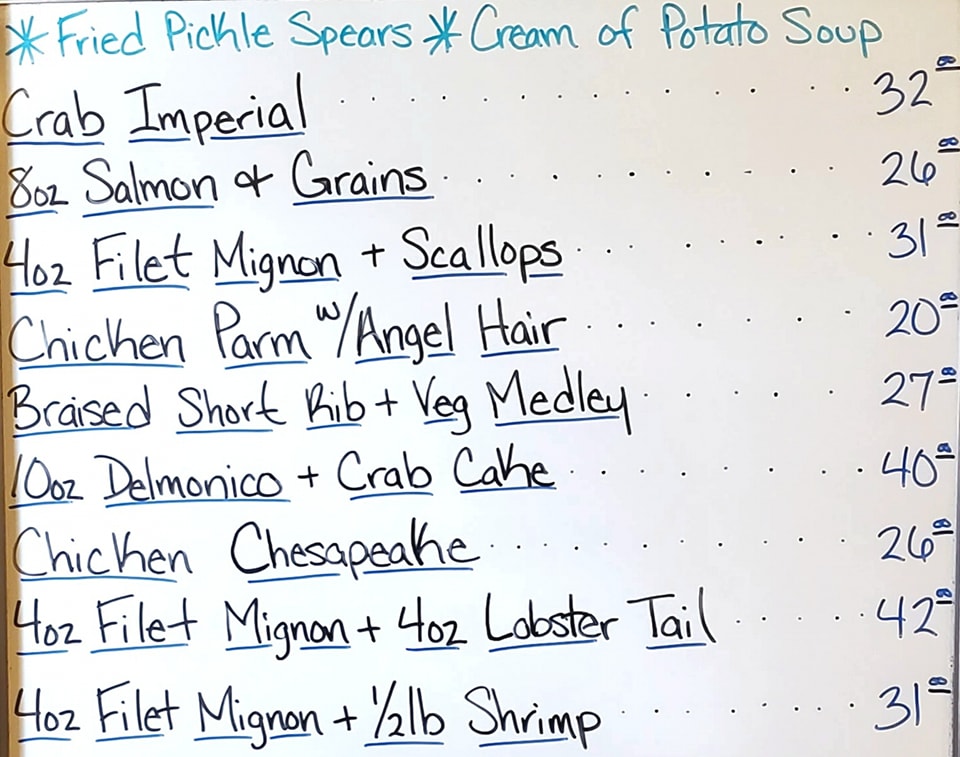 * Fried Pickle Spears * Cream of Potato Soup
Crab Imperial . . . . . . . . . . . . 32 00
8oz Salmon & Grains . . . . . . . . . . 26 00
4oz Filet Mignon + Scallops . . . . . . . . 31 00
Chicken Parm w/Angel Hair . . . . . . . . 20 00
Braised Short Rib + Veg Medley . . . . . . 27 00
10oz Delmonico + Crab Cake . . . . . . . . 40 00
Chicken Chesapeake . . . . . . . . . . 26 00
4oz Filet Mignon + 4oz Lobster Tail . . . . . 42 00
4oz Filet Mignon + 1/2lb Shrimp . . . . . . . 31 00